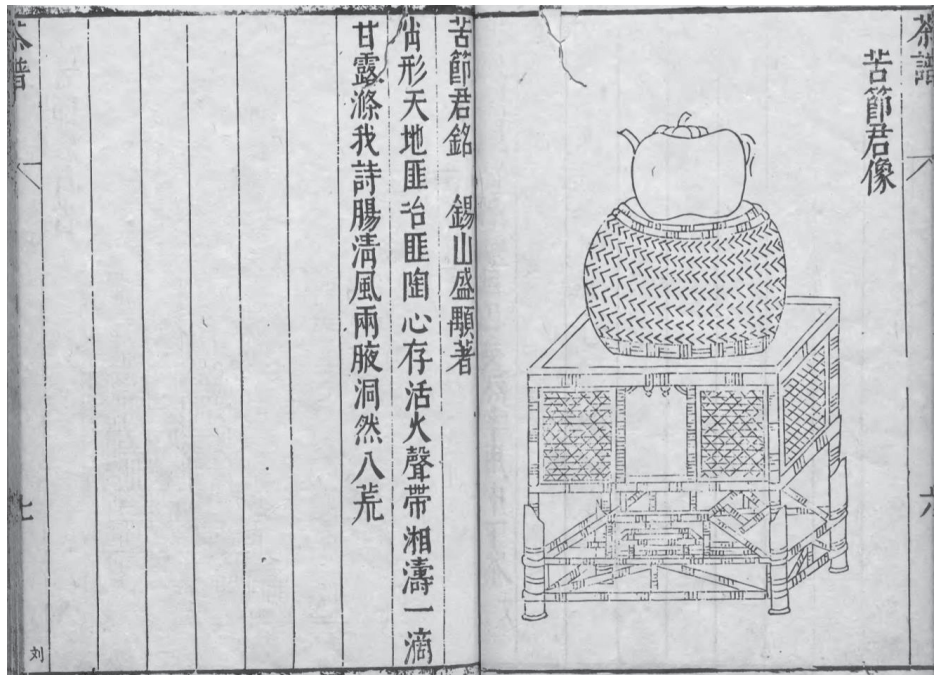 茶譜
六
苦節君像
苦節君銘 錫山盛顒著
肖形天地匪冶匪陶心存活火聲帶湘濤一滴
甘露滌我詩腸清風兩腋洞然八荒
茶譜
七
刘